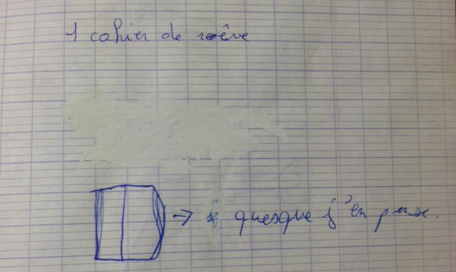 1 cahier de rêve
→ quesque j'en pense.